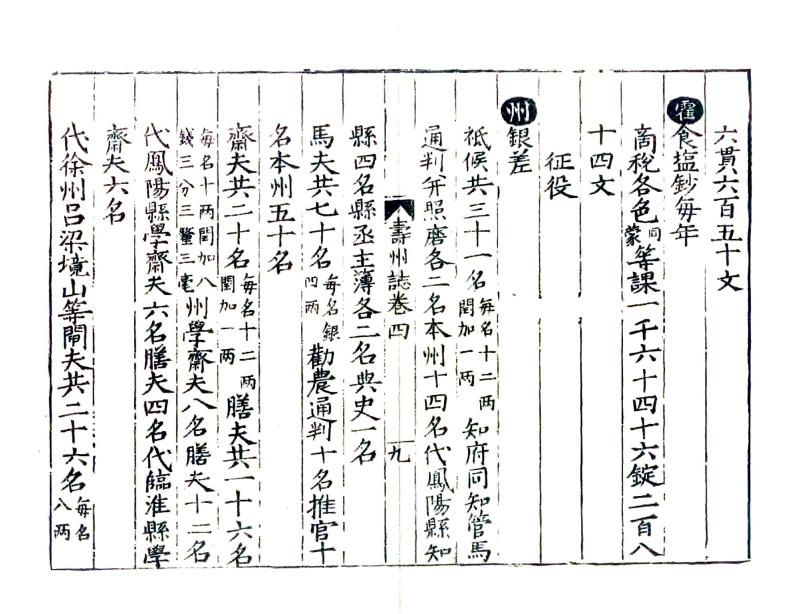 六貫六百五十文
霍食塩鈔每年
商稅各色同蒙等課一千六十四十六錠二百八
十四文
征役
州銀差
祗候共三十一名每名十二两閏加一两知府同知管馬
通判并照磨各二名本州十四名代鳳陽縣知
壽州誌卷四
九
縣四名縣丞主簿各二名典史一名
馬夫共七十名每名銀四两勸農通判十名推官十
名本州五十名
齋夫共二十名每名十二两閏加一两膳夫共一十六名
每名十两閏加八錢三分三釐三毫州學齋夫八名膳夫十二名
代鳳陽縣學齋夫六名膳夫四名代臨淮縣學
齋夫六名
代徐州吕梁境山等閘夫共二十六名每名八两